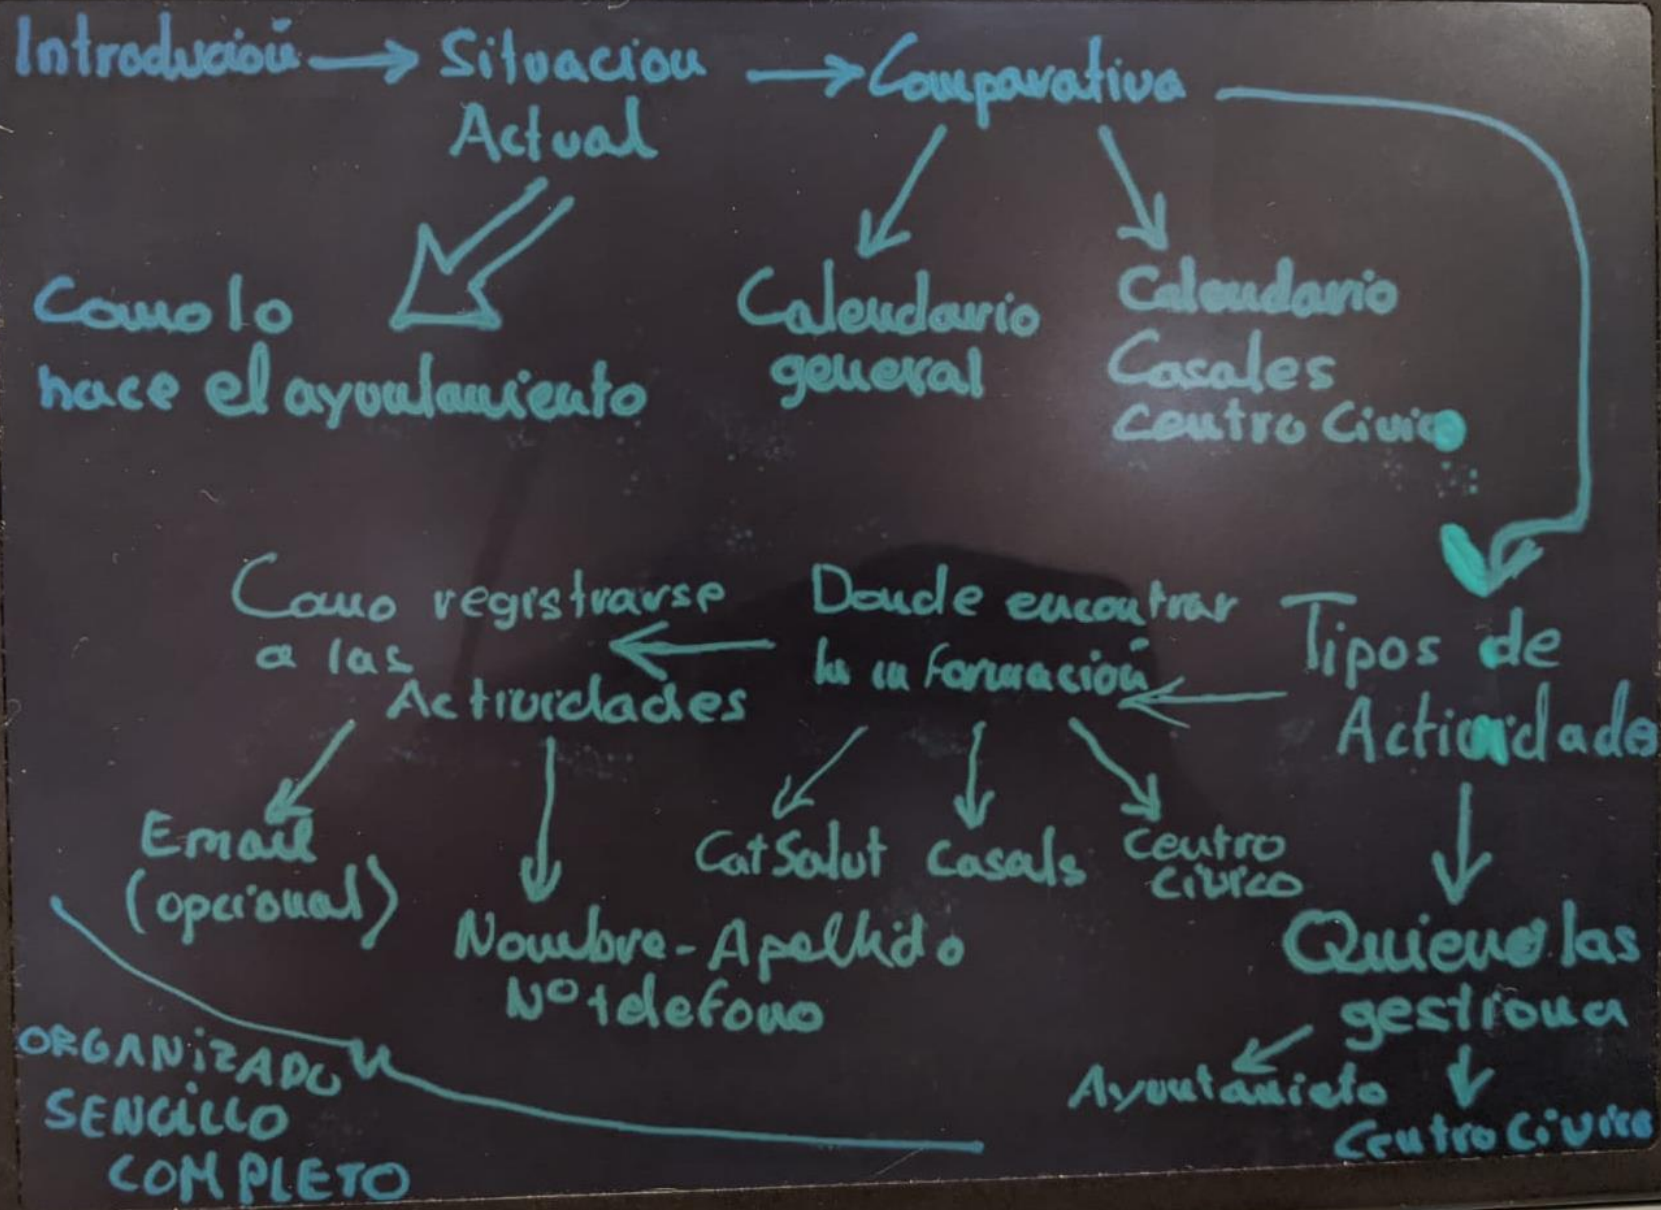 Introducioń
Situacion
Actual
Comparativa
Como lo
hace el ayuntamiento
Calendario
general
Calendario
Casales
centro Civico
Como registrarse
a las
Actividades
Donde encontrar
la información
Tipos de
Actividade
Email
(opcional)
Nombre-Apellido
Nº telefono
CatSalut
Casals
Centro
Civico
Quien las
gestiona
Ayuntamieto
Centro Civico
ORGANiZADO
SENCiLLO
COMPLETO